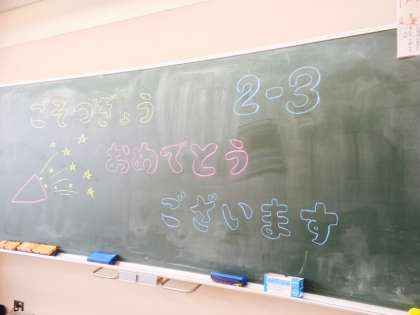 ごそつぎょう
2-3
おめでとう
ございます